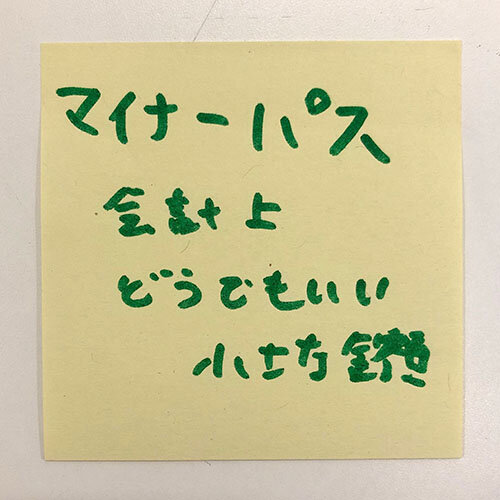 マイナーパス
会計上
どうでもいい
小さな金額